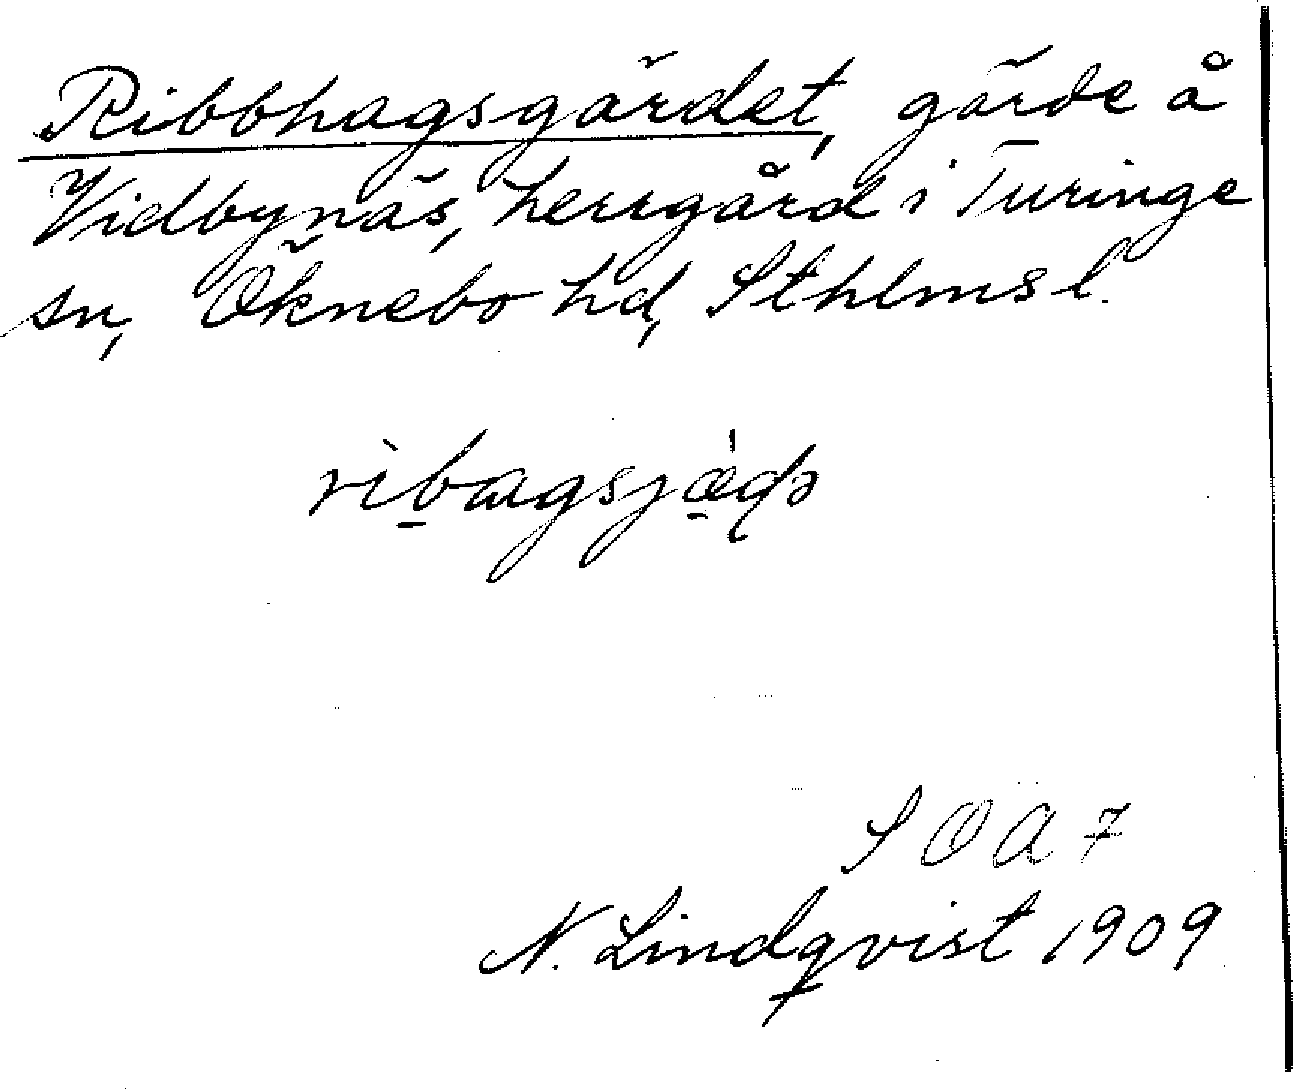 Ribbhagsgärdet, gärde å
Vidbynäs, herrgård i Turinge
sn, Öknebo hd, Sthlms l.
SOA 7
N. Lindqvist 1909